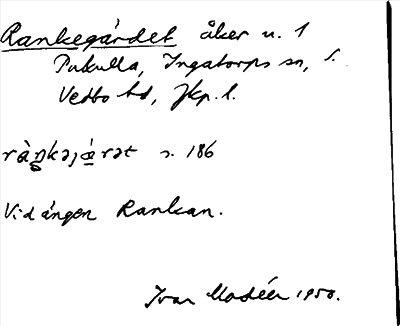 Rankegärdet åker u. 1
Pukulla, Ingatorps sn, S.
Vedbo hd, Jkp. l.
ràŋkəjá̤rət s. 186
Vid ängen Rankan.
Ivar Modéer 1950.